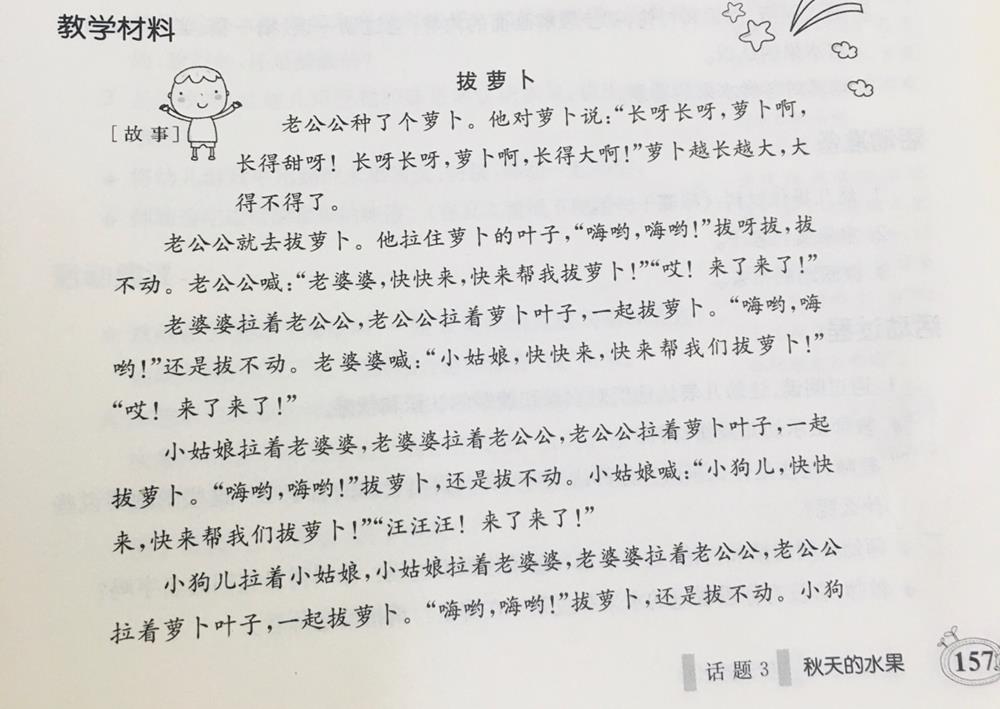 教学材料
拔萝卜
[故事]
老公公种了个萝卜。他对萝卜说:“长呀长呀,萝卜啊,
长得甜呀!长呀长呀,萝卜啊,长得大啊!”萝卜越长越大,大
得不得了。
老公公就去拔萝卜。他拉住萝卜的叶子,“嗨哟,嗨哟!”拔呀拔,拔
不动。老公公喊:“老婆婆,快快来,快来帮我拔萝卜!”“哎!来了来了!”
老婆婆拉着老公公,老公公拉着萝卜叶子,一起拔萝卜。“嗨哟,嗨
哟!”还是拔不动。老婆婆喊:“小姑娘,快快来,快来帮我们拔萝卜!”
“哎!来了来了!”
小姑娘拉着老婆婆,老婆婆拉着老公公,老公公拉着萝卜叶子,一起
拔萝卜。“嗨哟,嗨哟!”拔萝卜,还是拔不动。小姑娘喊:“小狗儿,快快
来,快来帮我们拔萝卜!”“汪汪汪!来了来了!”
小狗儿拉着小姑娘,小姑娘拉着老婆婆,老婆婆拉着老公公,老公公
拉着萝卜叶子,一起拔萝卜。“嗨哟,嗨哟!”拔萝卜,还是拔不动。小狗
话题3 秋天的水果 157